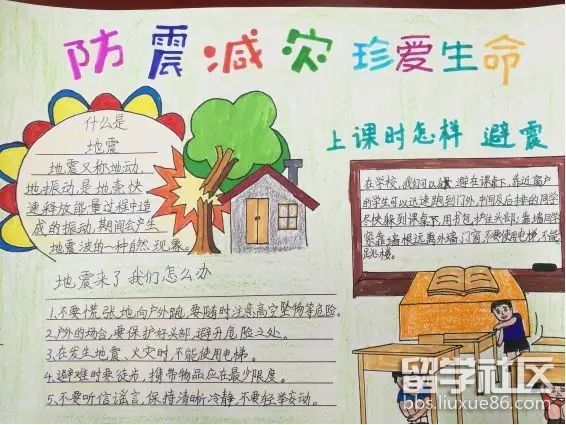 防震减灾 珍爱生命
什么是
地震
地震又称地动、
地振动,是地壳快
速释放能量过程中造
成的振动,期间会产生
地震波的一种自然现象。
上课时怎样 避震
在学校,我们可以 避在课桌下,靠近窗户
的学生可以迅速跑到门外,中间及后排的同学
尽快躲到课桌下,用书包护住头部;靠墙同学
紧靠墙根远离外墙、门窗,不要使用电梯,不能
跳楼。
地震来了我们怎么办
1.不要慌张地向户外跑,要随时注意高空坠物等危险。
2.户外的场合,要保护好头部,避开危险之处。
3.在发生地震、火灾时,不能使用电梯。
4.避难时要徒步,携带物品应在最少限度。
5.不要听信谣言,保持清晰冷静,不要轻举妄动。
留学社区
bbs.liuxue86.com